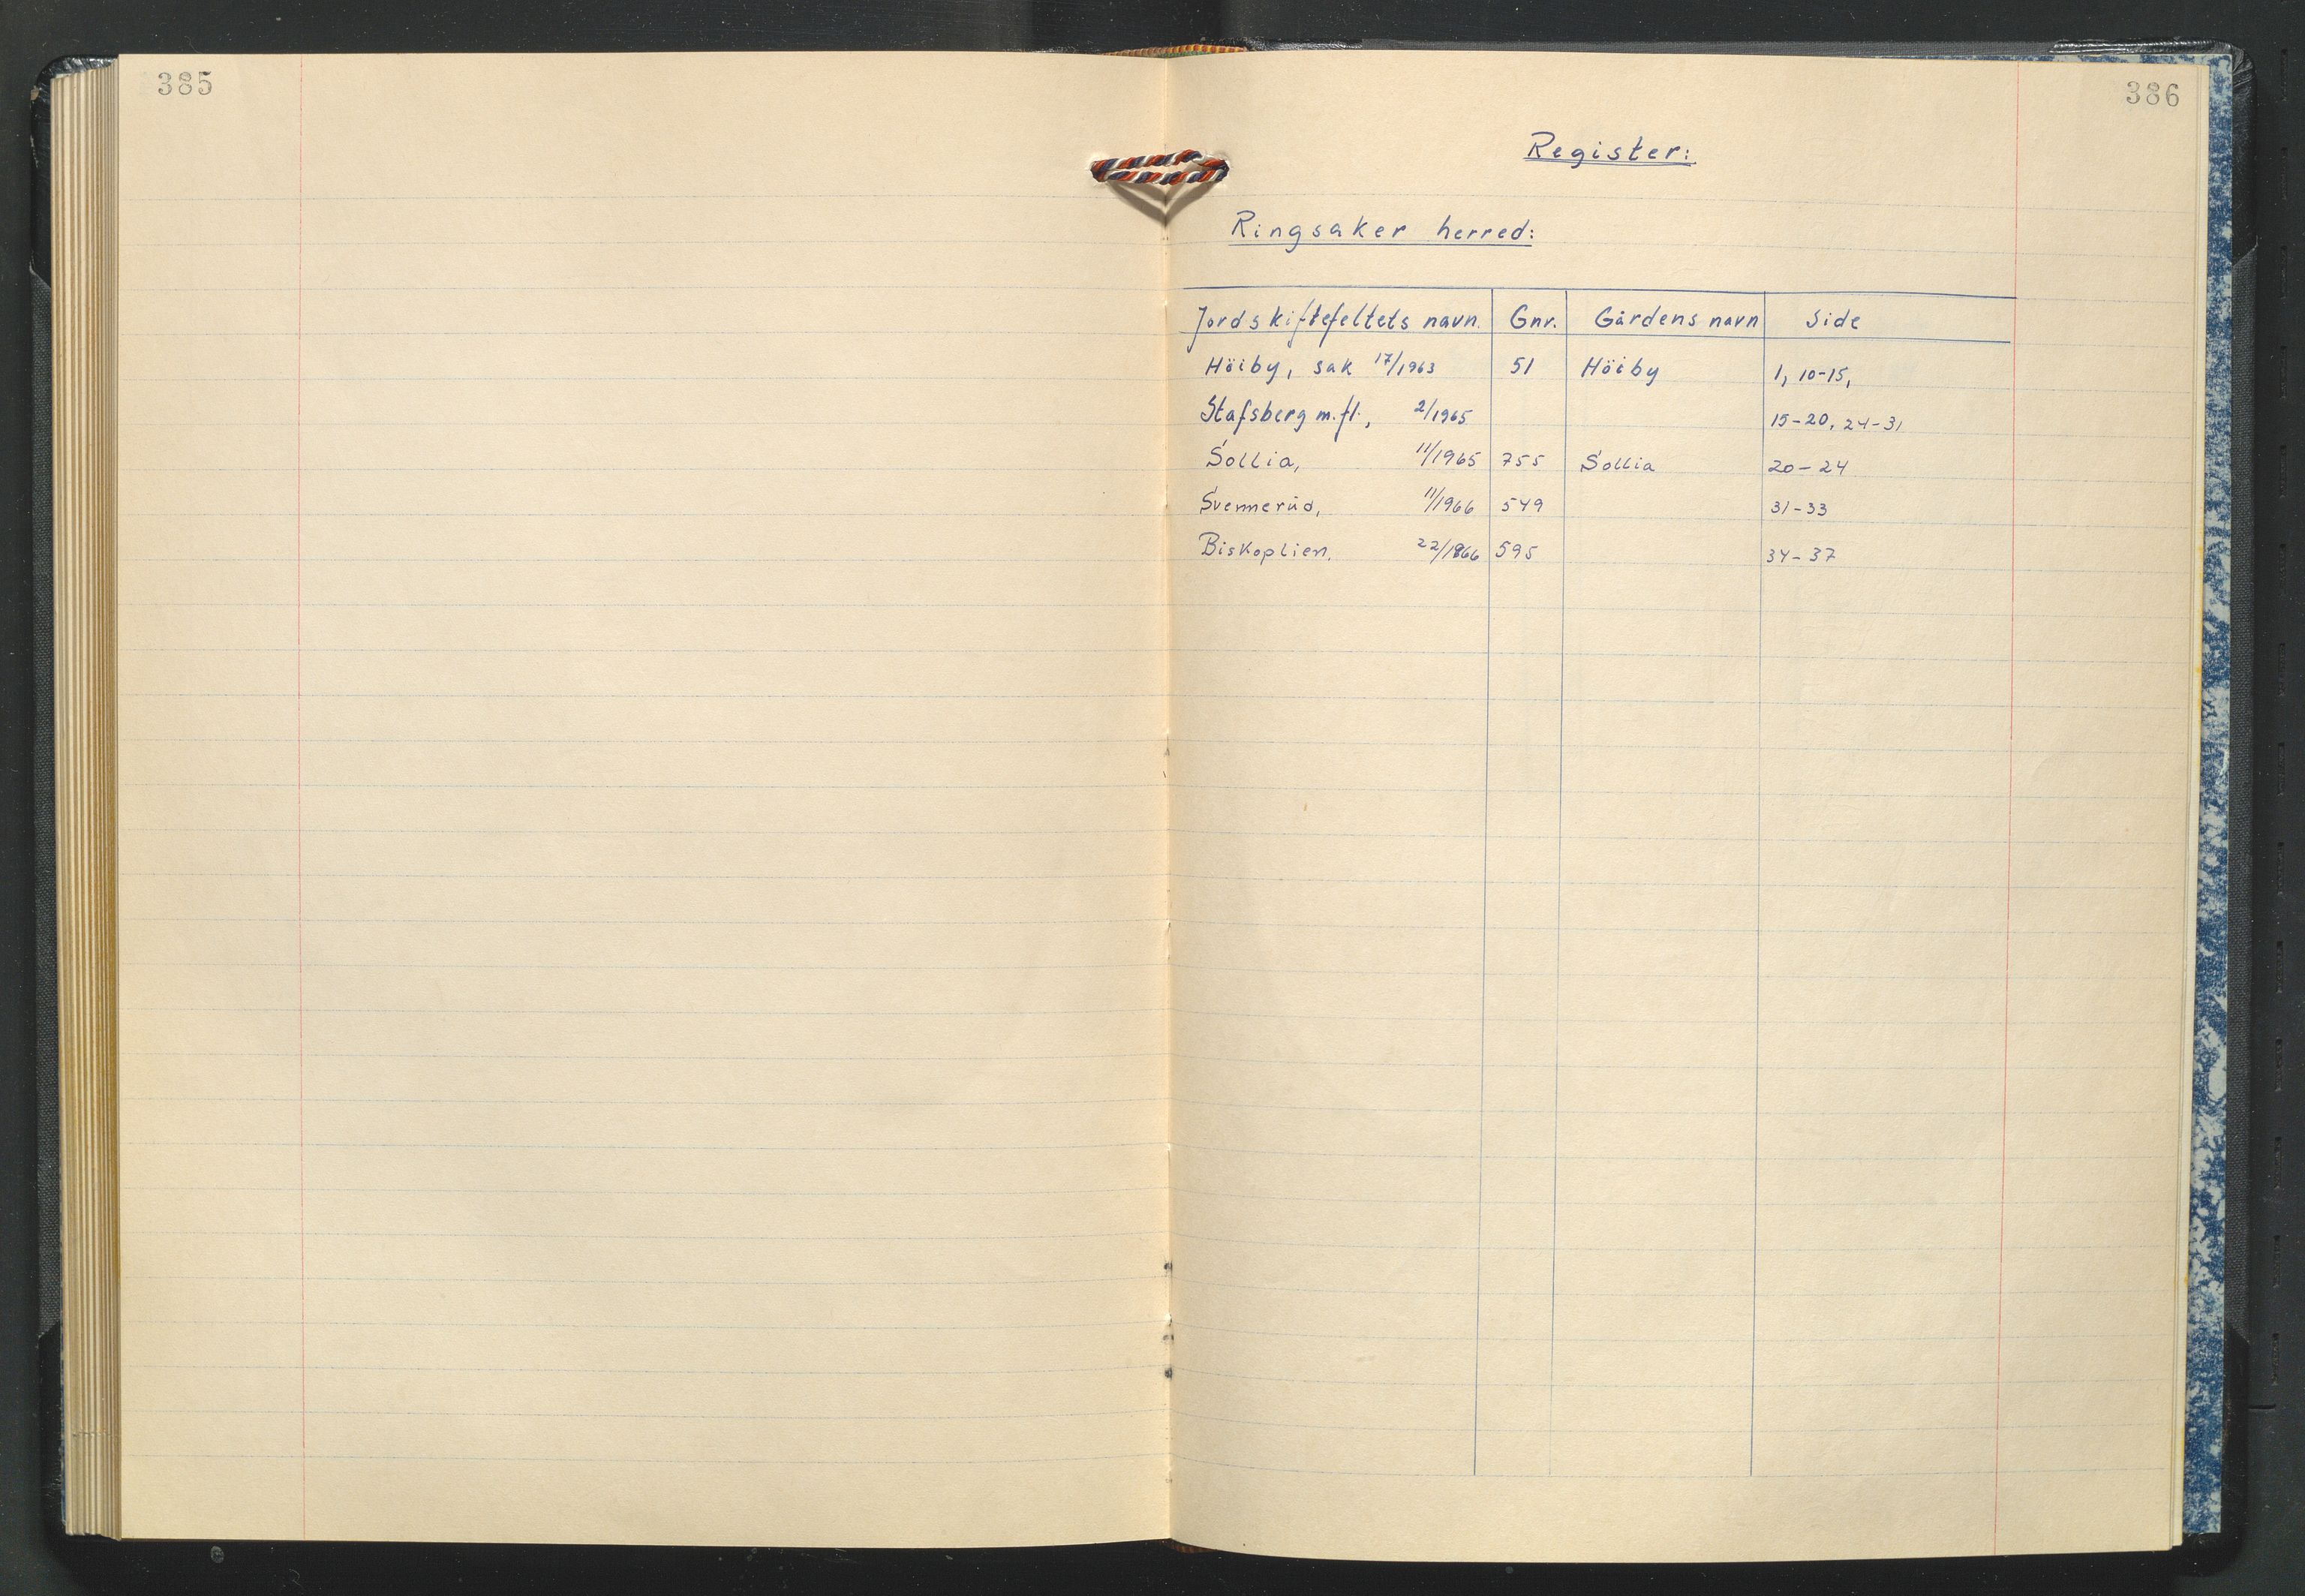 385
386
Register:
Ringsaker herred:
Jordskiftefeltets navn. Gnr. Gårdens navn Side
Höiby, sak 17/1963 51 Höiby 1, 10-15,
Stafsberg m.fl., 2/1965 15-20, 24-31
Sollia, 11/1965 755 Sollia 20-24
Svennerud, 11/1966 549 31-33
Biskoplien. 22/1966 595 34-37